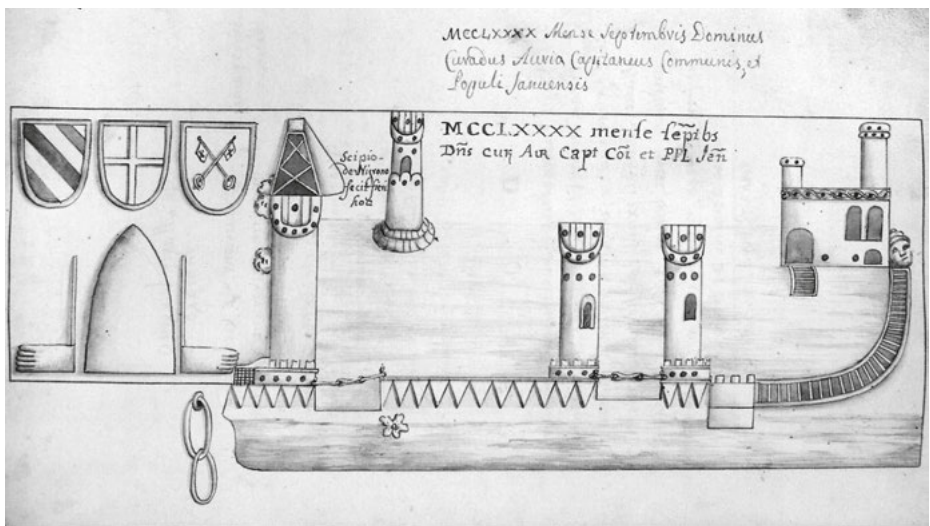 MCCLXXXX Mense Septembris Dominus
Curadus Auria Capitaneus Communis, et
Populi Januensis
MCCLXXXX mense
Dns cur Aur Capt Coi et PPL Jen
Scipio
fecit